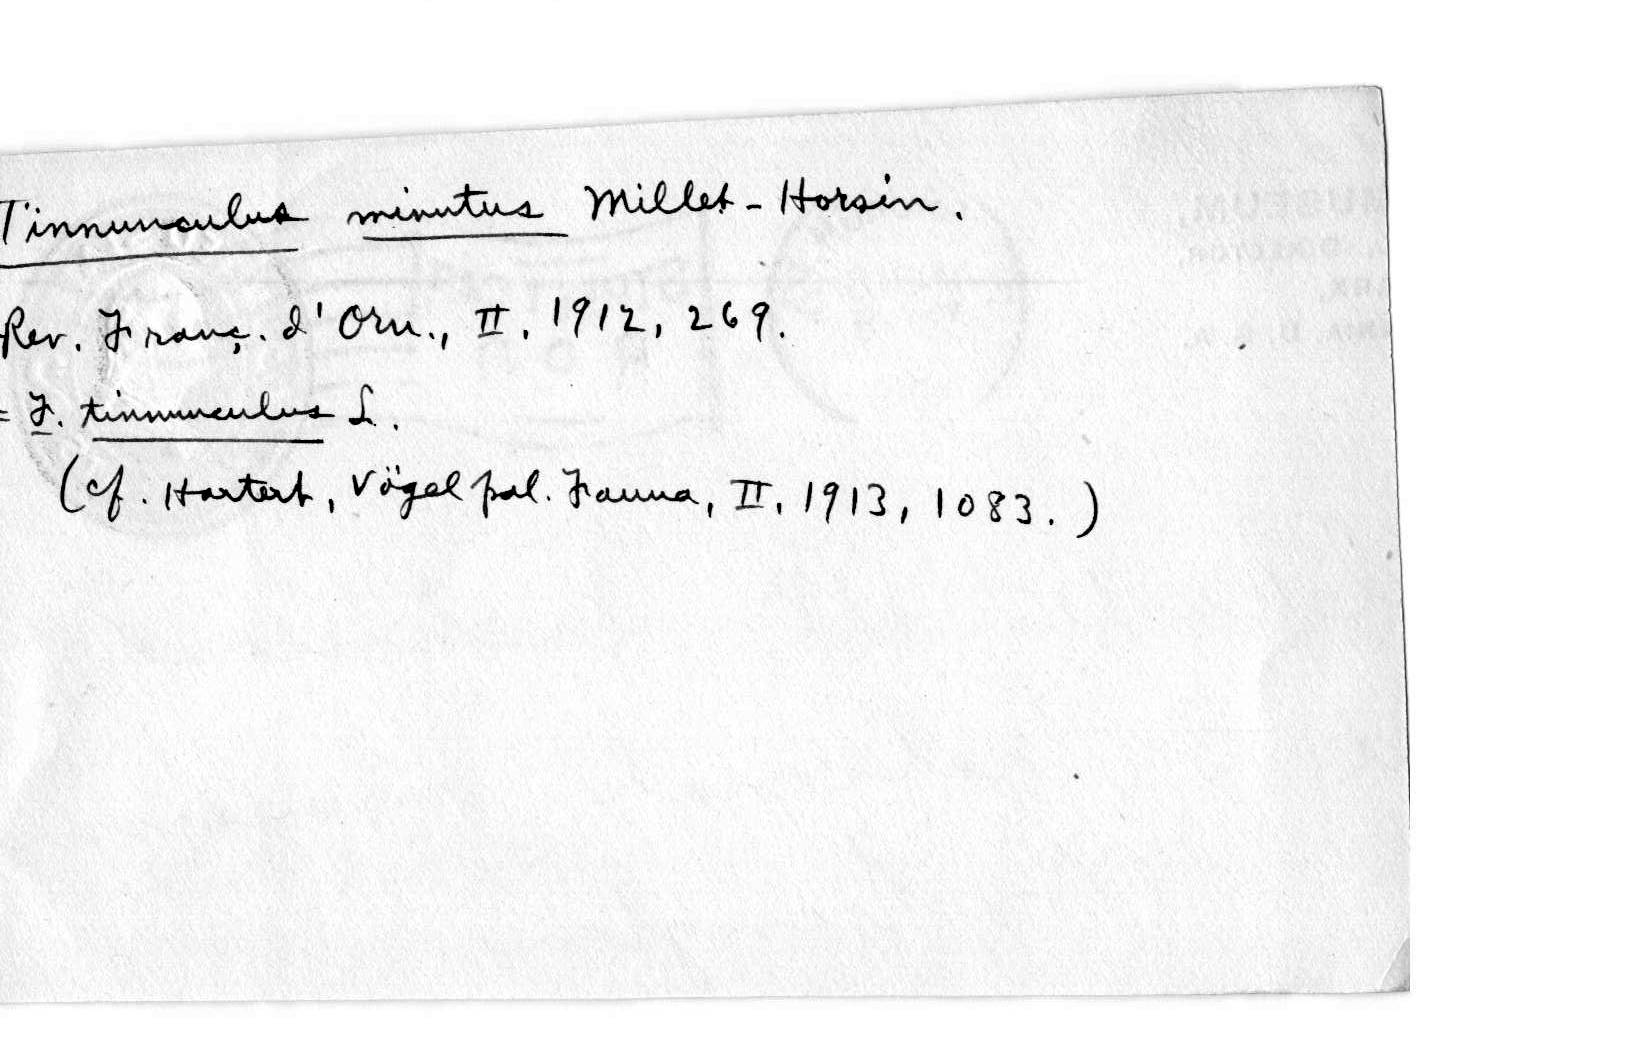 Tinnunculus minutus Millet-Horsin.
Rev. Franç. d'Orn., II, 1912, 269.
= F. tinnunculus L.
(cf. Hartert, Vögel pal. Fauna, II, 1913, 1083.)